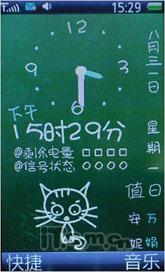 15:29
12
3
6
9
八月三一日
星期一
下午
15时29分
@剩余电量
@信号状态
值日
安
万
娟
快捷
音乐